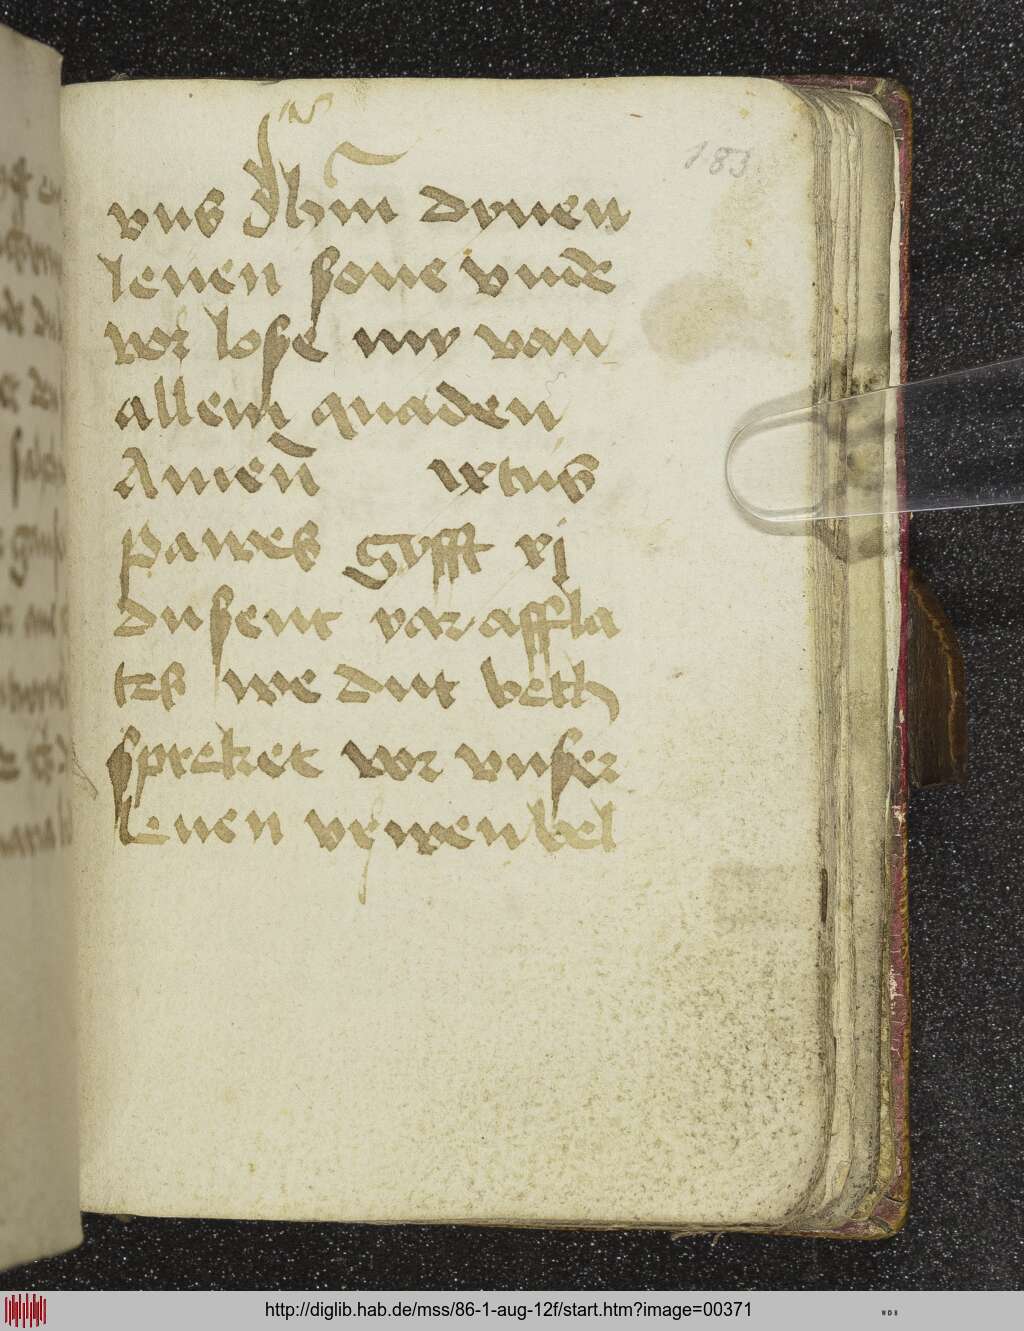 183
vns Jhm̄ dynen
leuen sone vnde
vor lose my van
allem quaden
Amen̄ xtus
pawes gyfft xj
dusent yar affla
tes we dut beth
spreket vor vnser
leuen vrwen bel
http://diglib.hab.de/mss/86-1-aug-12f/start.htm?image=00371